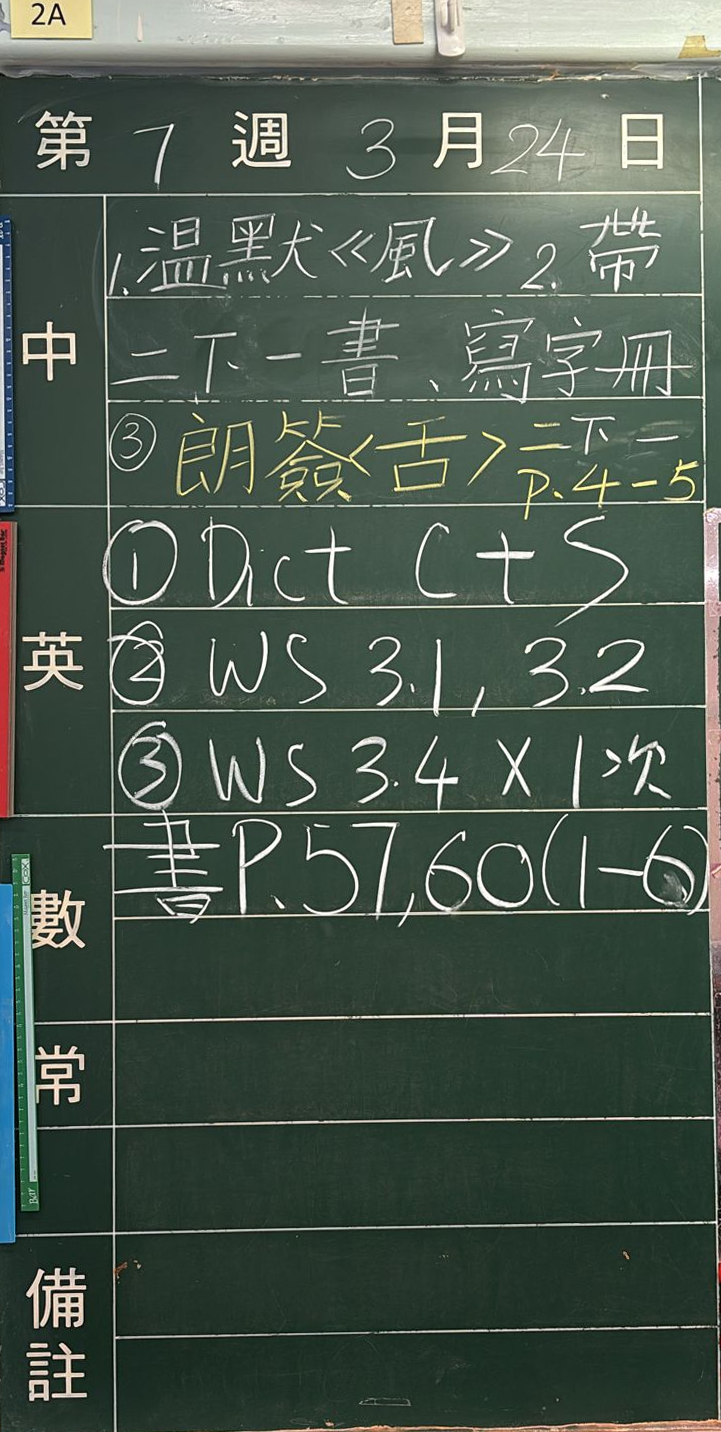 2A
第 7 週 3 月 24 日
中
1.温默《風》2.帶
二下一書、寫字冊
③ 朗簽<舌>二下一
p.4-5
英
① Dict C+S
② WS 3.1, 3.2
③ WS 3.4 X 1次
數
書P.57,60(1-6)
常
備註